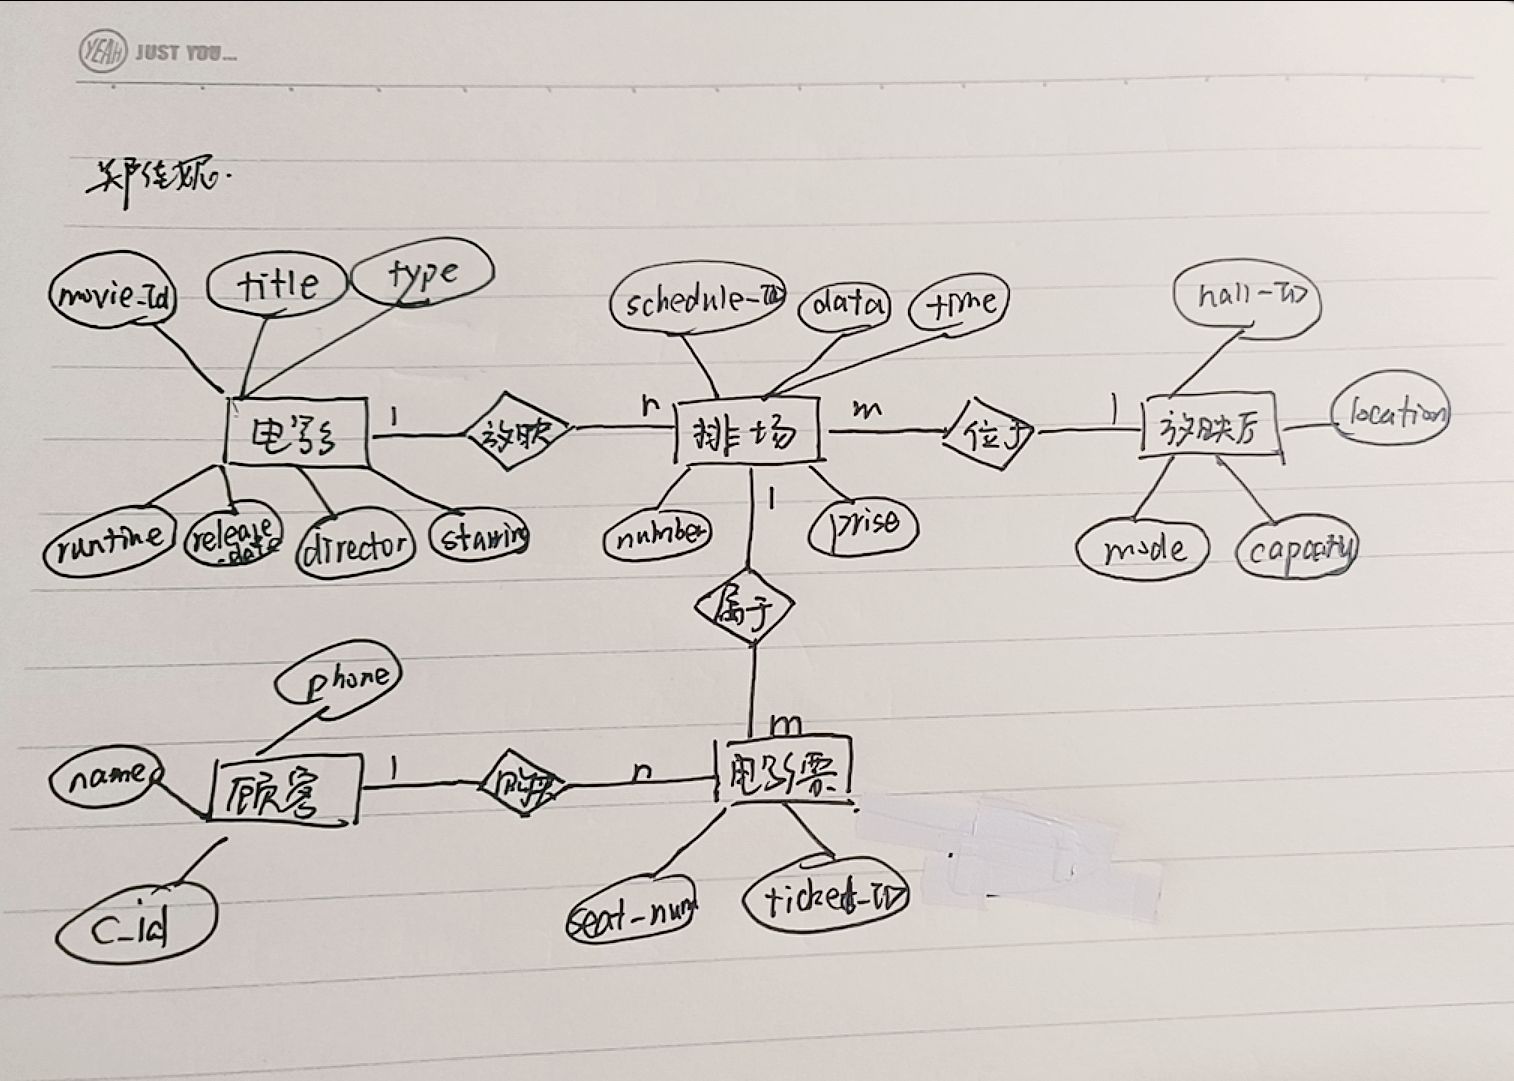 YEAH JUST YOU...
郑佳妮.
movie_Id title type
schedule-ID data time
hall-ID
电影 1 放映 n 排场 m 位于 1 放映厅
location
runtime release_date director starring
number 1 prise
mode capacity
属于
phone
m
name
顾客 1 购买 n 电影票
C_id
seat-num ticked-ID